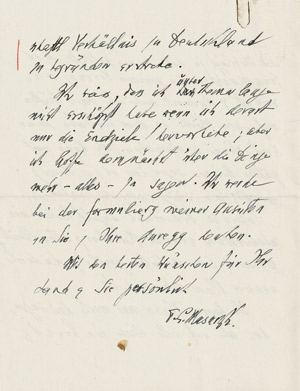 schaftl Verhältnis zu Deutschland
zu begründen erstrebe.
Ich weiss, dass ich unser Thema lange
nicht erschöpft habe wenn ich derart
nur die Endziele hervorhebe; aber
ich hoffe demnächst über die Dinge
mehr – alles – zu sagen. Ich werde
bei der formulierg meiner Ansichten
an Sie, Ihre Anregg denken.
Mit den besten Wünschen für Ihr
Land u Sie persönlich
T. G. Masaryk.